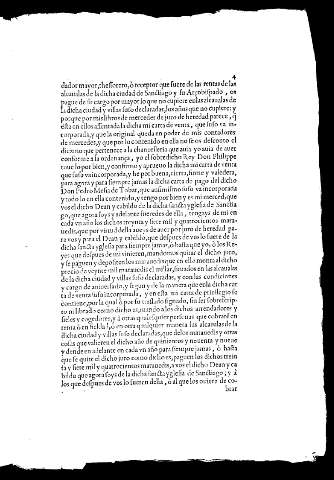 4
dador mayor, thesorero, o receptor que fuere de las rentas de las
alcaualas de la dicha ciudad de Sanctiago y su Arçobispado, os
pague de su cargo por mayor lo que no cupiere en las alcaualas de
la dicha ciudad y villas suso declaradas, los años que no cupiere: y
porque por mis libros de mercedes de juro de heredad parece, q̃
esta en ellos assentada la dicha mi carta de venta, que suso va in-
corporada, y que la original queda en poder de mis contadores
de mercedes, y que por lo contenido en ella no se os desconto el
diezmo que pertenece a la chancilleria que auia yo auia de auer
conforme a la ordenança, yo el sobredicho Rey Don Philippe
tuue lo por bien, y confirmo y aprueuo la dicha mi carta de venta
que suso va incorporada, y he por buena, cierta, firme y valedera,
para agora y para siempre jamas la dicha carta de pago del dicho
Don Pedro Messia de Touar, que assimismo suso va incorporada
y todo lo en ella contenido, y tengo por bien y es mi merced, que
vos el dicho Dean y cabildo de la dicha sancta yglesia de Sanctia
go, que agora soys y adelante fueredes de ella, tengays de mi en
cada vn año los dichos treynta y siete mil y quatrocientos mara-
uedis, que por virtud della aueys de auer por juro de heredad pa-
ra vos y para el Dean y cabildo, que despues de vos lo fuere de la
dicha sancta yglesia para siempre jamas, o hasta que yo, o los Re-
yes que despues de mi vinieren, mandemos quitar el dicho juro,
y se paguen y depositen los marauedis que en ello monta al dicho
precio de veynte mil marauedis el millar, situados en las alcaualas
de la dicha ciudad y villas suso declaradas, y con las condiciones
y cargo de antelado, y segun y de la manera que en la dicha car
ta de venta suso incorporada, y en esta mi carta de priuilegio se
contiene, por la qual o por su traslado signado, sin ser sobrescrip-
to ni librado como dicho es, mando a los dichos arrendadores y
fieles y cogedores, y a otras qualesquier personas que cobraren en
renta o en fieldad, o en otra qualquier manera las alcaualas de la
dicha ciudad y villas suso declaradas, que de los marauedis y otras
cosas que valieren el dicho año de quinientos y nouenta y nueue
y dende en adelante en cada vn año para siempre jamas, o hasta
que se quite el dicho juro como dicho es, paguen los dichos trein
ta y siete mil y quatrocientos marauedis, a vos el dicho Dean y ca
bildo que agora soys de la dicha sancta yglesia de Sanctiago, y a
los que despues de vos lo fueren della, o al que los ouiere de co-
brar